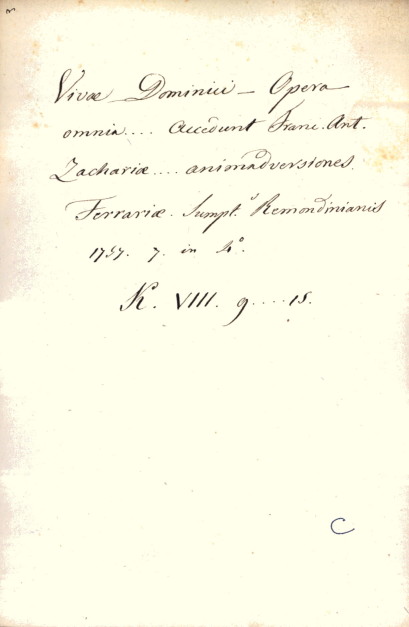 Vivæ Dominici - Opera
omnia.... Accedunt Franc. Ant.
Zachariæ.... animadversiones.
Ferrariæ. Sumpt.s Remondinianis
1757. 7. in 4°.
K. VIII. 9.....15.
C